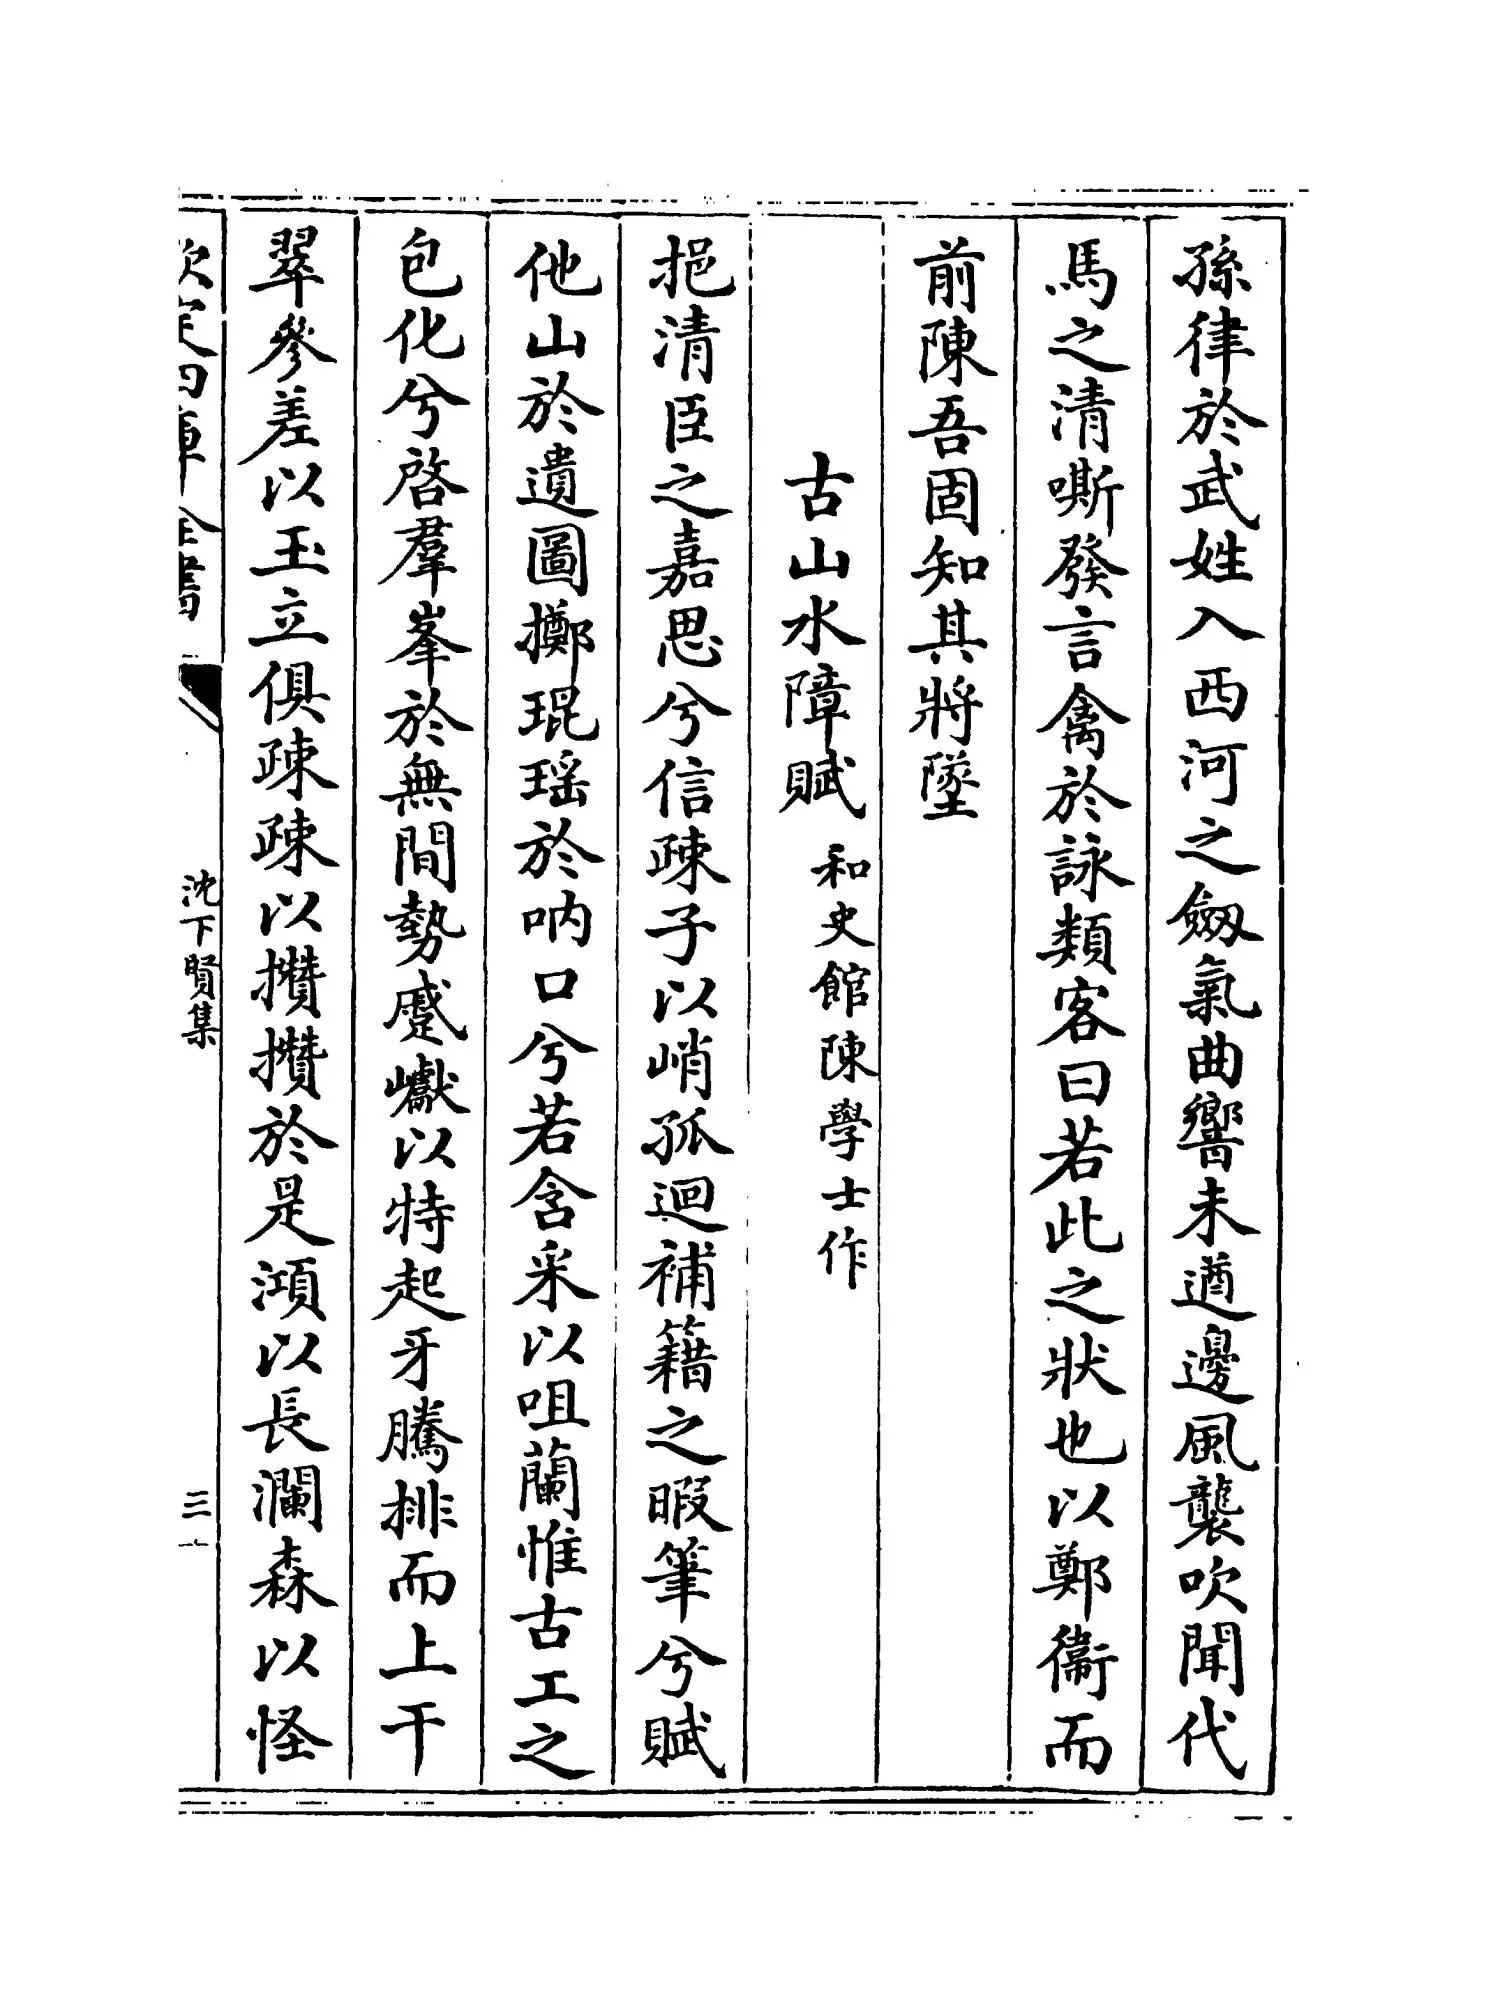 孫律於武姓入西河之劔氣曲響未遒邊風襲吹聞代
馬之清嘶發言禽於詠類客曰若此之狀也以鄭衞而
前陳吾固知其將墜
古山水障賦 和史館陳學士作
挹清臣之嘉思兮信疎子以峭孤迴補籍之暇筆兮賦
他山於遺圖擲琨瑶於吶口兮若含采以咀蘭惟古工之
包化兮啓羣峯於無間勢蹙巘以特起牙騰排而上干
翠參差以玉立俱疎疎以攢攢於是澒以長瀾森以怪
欽定四庫全書
沈下賢集
三